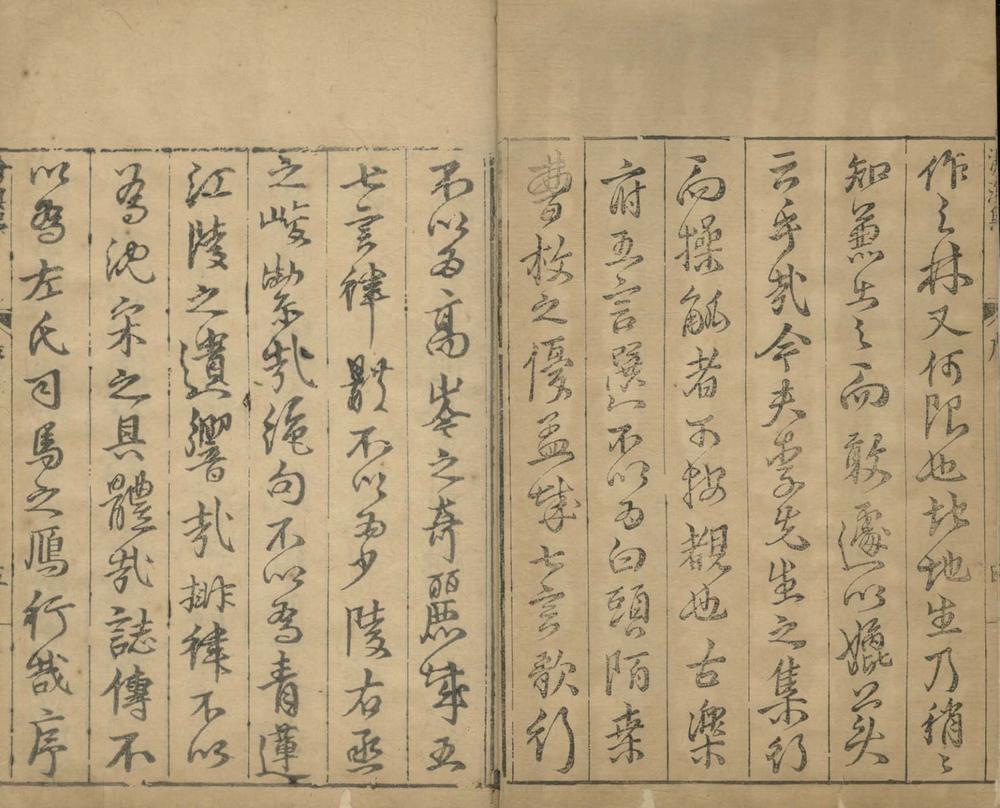 作之林又何限也堆地生乃稍〻
知兼古之而敢遽以媲前美
云乎哉今夫李先生之集行
而操觚者可按覩也古樂
府五言選不以為白頭陌桒
曹枚之優孟哉七言歌行
不以為高岑之奇麗哉五
七言律體不以為少陵右丞
之峻潔哉絕句不以為青蓮
江陵之遺響哉排律不以
為沈宋之具體哉誌傳不
以為左氏司馬之鴈行哉序